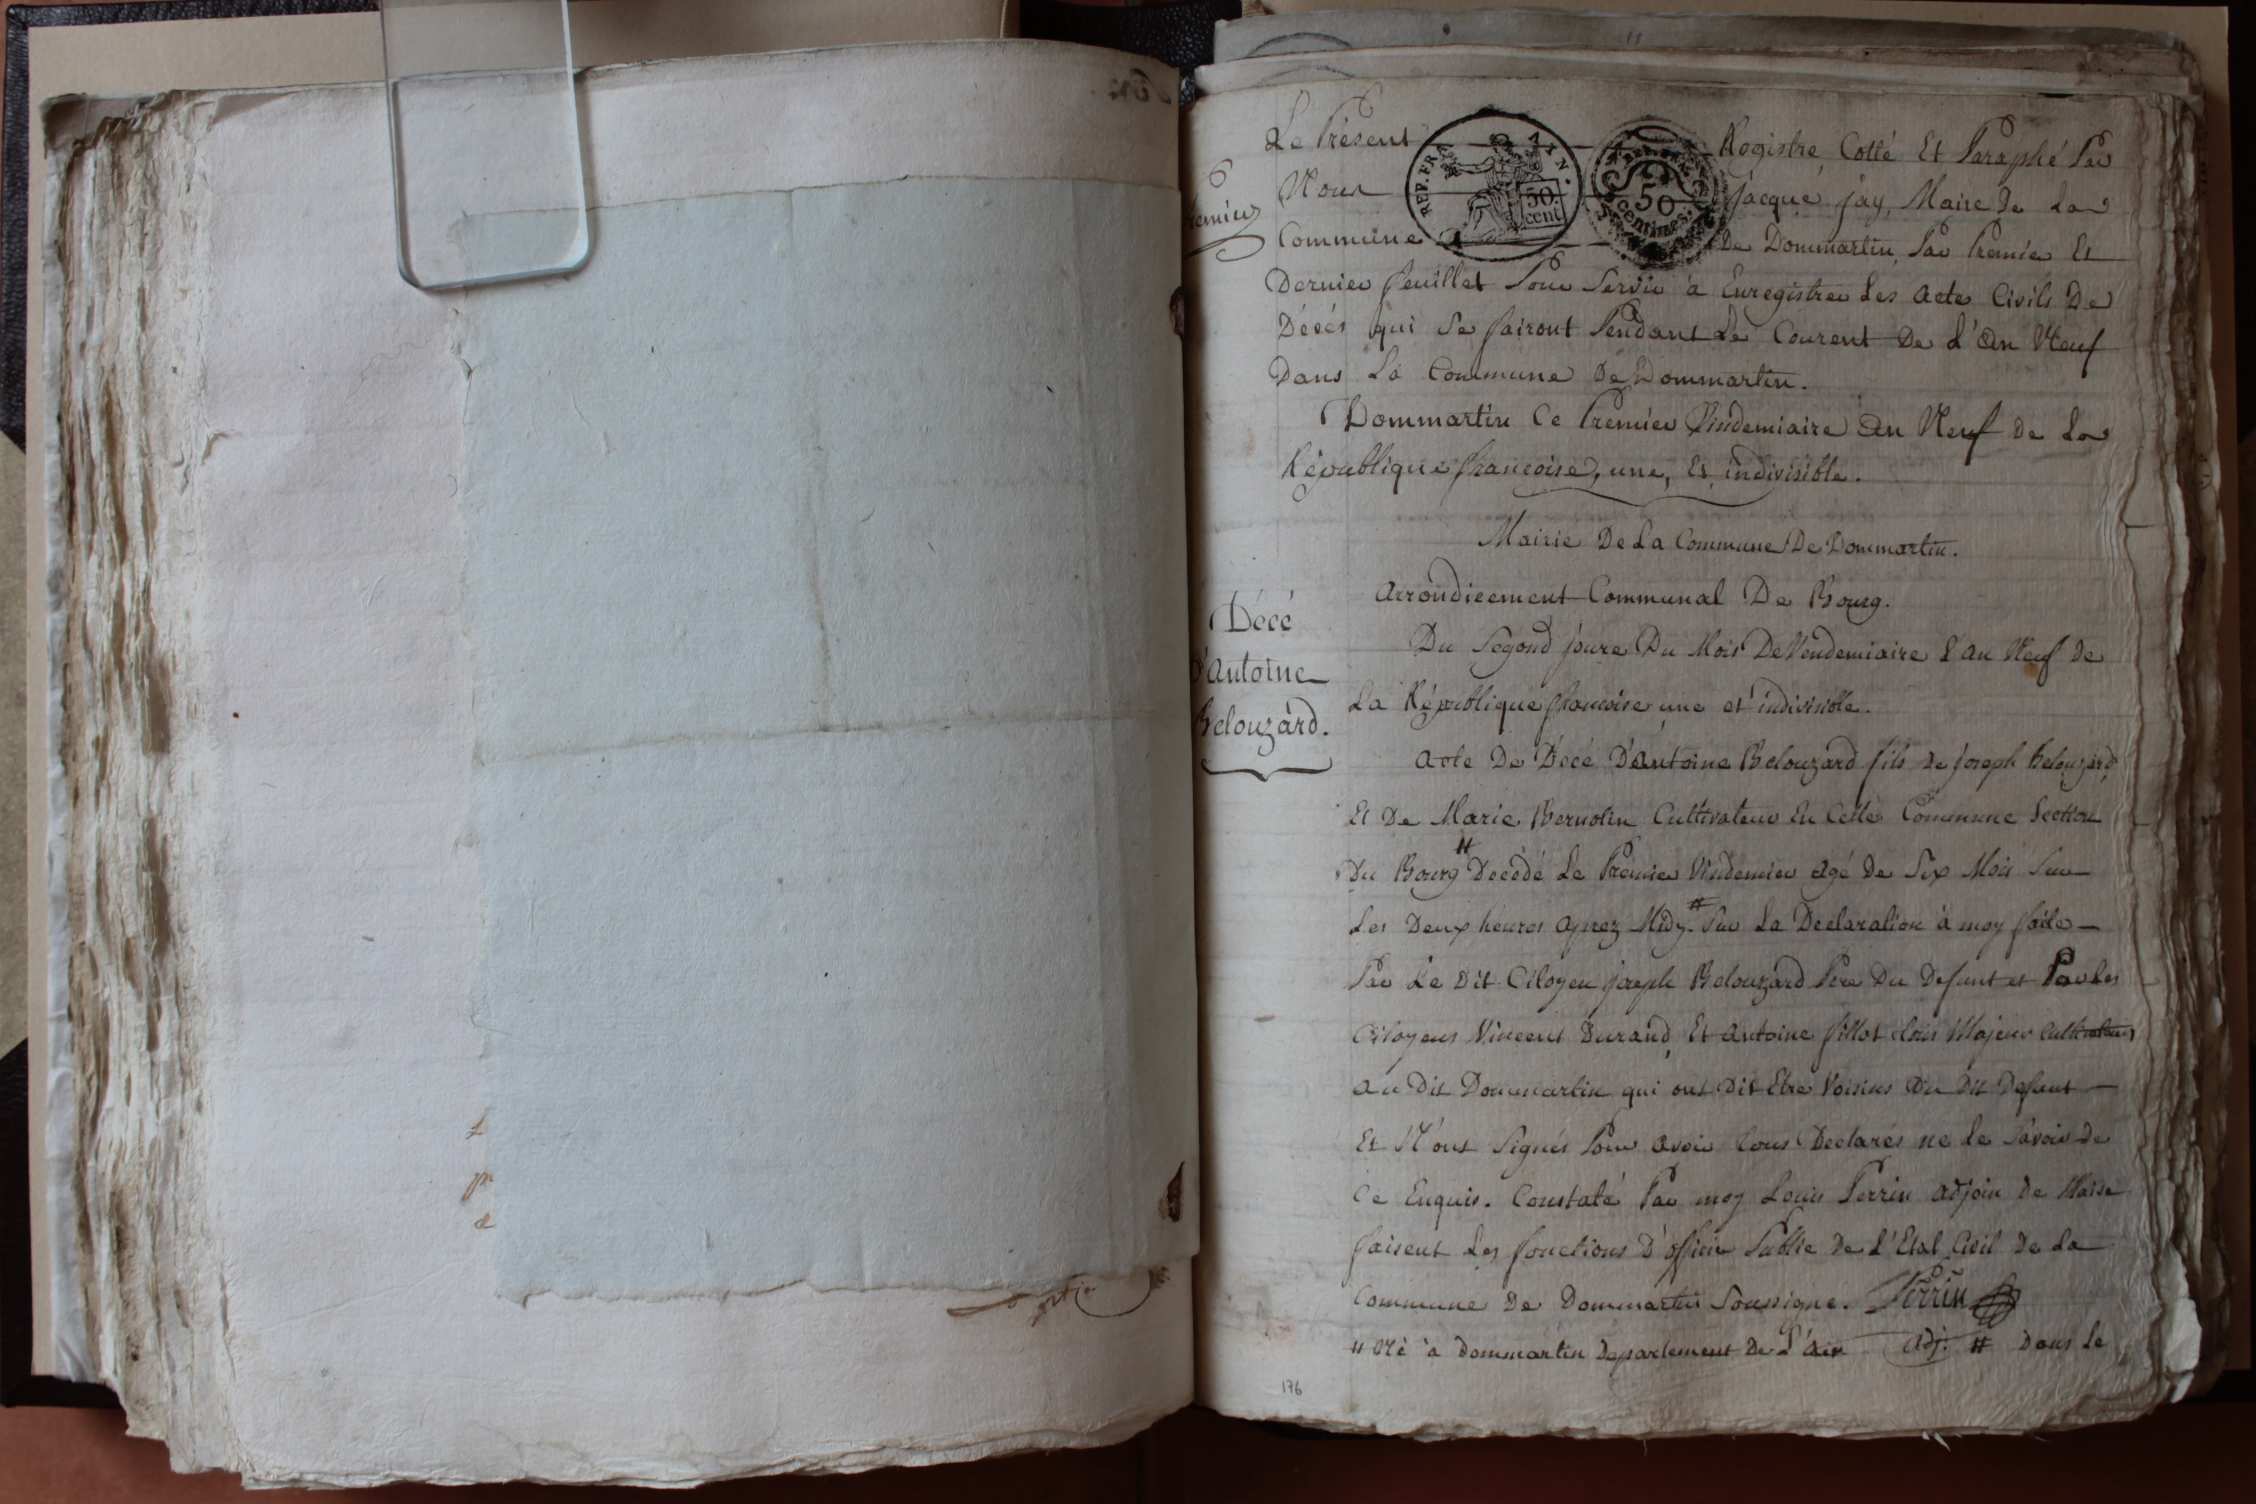 Le Présent Registre Cotté Et Paraphé Par
Nous jacque jay, Maire De La
Commune De Dommartin, Par Premier Et
Dernier feuillet Pour Servir à Enregistrer Les Acte Civils De
Décés qui Se fairont Pendant Le Courent De L'An Neuf
Dans La Commune De Dommartin.
Dommartin Ce Premier Vindemiaire An Neuf De La
République françoise, une, Et indivisible.
REP. FRA
50 cent
REP. FRA.
50
centimes.
Premier
Mairie De La Commune De Dommartin.
Arrondicement Communal De Bourg.
Décé
D'Antoine
Belouzard.
Du Segond joure Du Mois De Vendemiaire L'an Neuf De
La République françoise une et indivisible.
Acte De Décé D'Antoine Belouzard fils De joseph Belouzard
Et De Marie Bernolin Cultivateur En Cette Commune Section
Du Bourg # Décédé Le Premier Vindemier Agé De Six Mois Sur
Les Deux heures Aprez Midy. # Sur La Declaration à moy faite
Par Le Dit Citoyen joseph Belouzard Pere Du Defunt et Par Les
Citoyens Vincent Durand, Et Antoine fillot tous Majeur Cultivateurs
Au Dit Dommartin qui ont Dit Etre Voisins Du Dit Defunt
Et N'ont Signés Pour Avoir tous Declarés ne Le Savoir De
Ce Enquis. Constaté Par moy Louis Perrin Adjoin De Maire
faisent Les fonctions D'officier Public De L'Etat Civil De La
Commune De Dommartin Soussigné. Perrin
# Né à Dommartin Departement De L'Ain Adj. # Dans Le
176